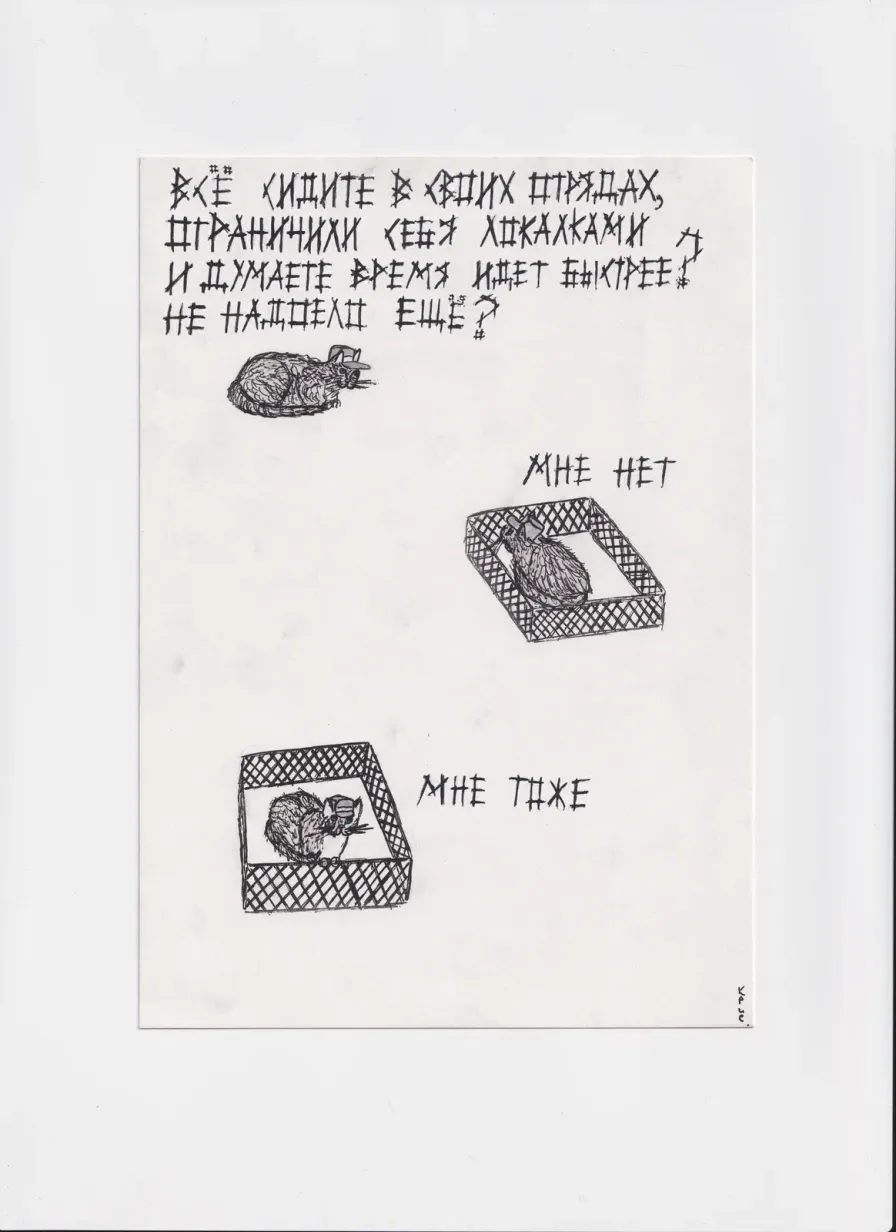 ВСЁ СИДИТЕ В СВОИХ ОТРЯДАХ,
ОГРАНИЧИЛИ СЕБЯ ЛОКАЛКАМИ
И ДУМАЕТЕ ВРЕМЯ ИДЕТ БЫСТРЕЕ?
НЕ НАДОЕЛО ЕЩЁ?
МНЕ НЕТ
МНЕ ТОЖЕ